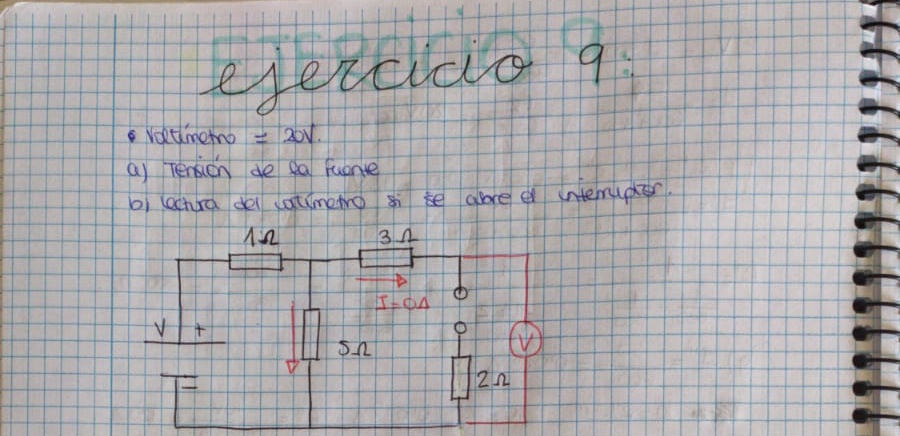 ejercicio 9:
• Voltímetro = 20V.
a) Tensión de la fuente
b) lectura del voltímetro si se abre el interruptor.
1Ω 3Ω
I=0A
V +
5Ω V
2Ω